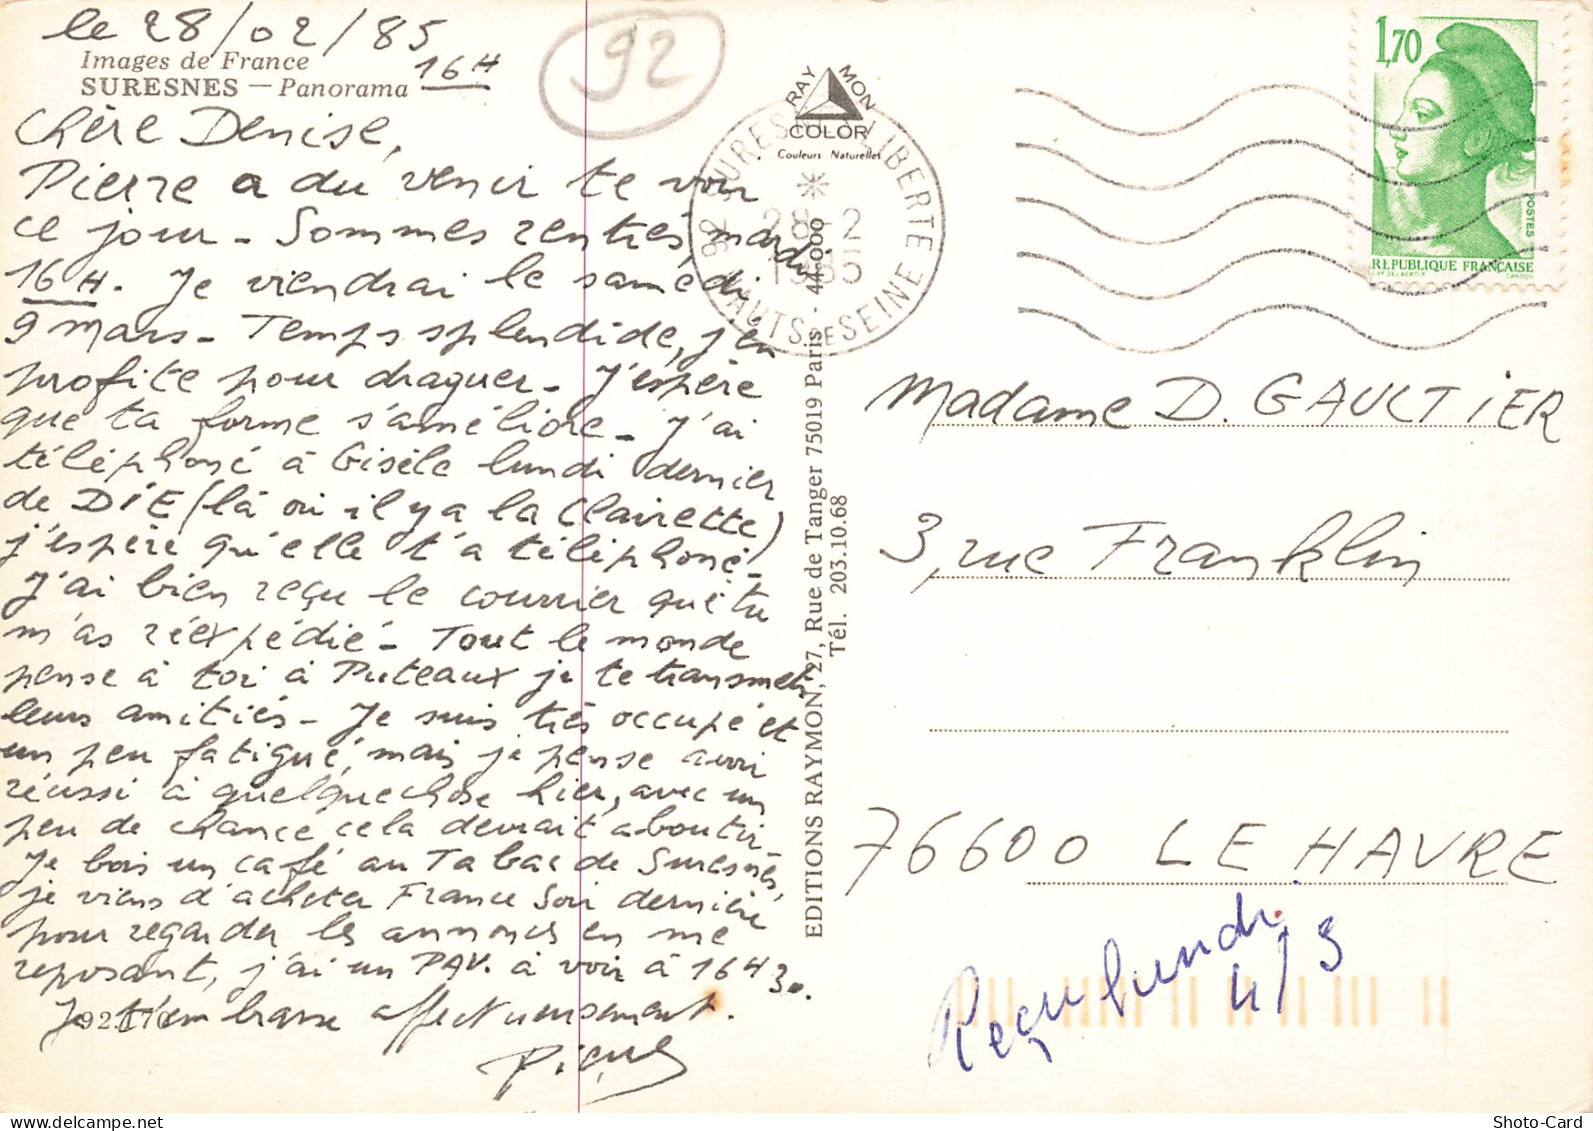 le 28/02/85
Images de France
16H
SURESNES — Panorama
Chère Denise,
Pierre a du venir te voir
ce jour - Sommes rentrés, mardi
16H. Je viendrai le samedi
9 Mars - Temps splendide, j'en
profite pour draguer - J'espère
que ta forme s'améliore - J'ai
téléphoné à Gisèle lundi dernier
de DIE (là où il y a la Clairette)
j'espère qu'elle t'a téléphoné -
J'ai bien reçu le courrier que tu
m'as réexpédié - Tout le monde
pense à toi à Puteaux je te transmets
leurs amitiés - Je suis très occupé et
un peu fatigué, mais je pense avoir
réussi à quelquechose hier, avec un
peu de chance cela devrait aboutir -
Je bois un café au Tabac de Suresnes,
je viens d'acheter France Soir dernière
pour regarder les annonces en me
reposant, j'ai un PAV. à voir à 16H30.
Je t'embrasse affectueusement.
92.170
92
RAYMON
COLOR
Couleurs Naturelles
92 SURESNES LIBERTE
28-2
1985
HAUTS DE SEINE
EDITIONS RAYMON, 27, Rue de Tanger 75019 Paris . 44-000
Tél. 203.10.68
1,70
POSTES
REPUBLIQUE FRANÇAISE
GANDON
Madame D. GAULTIER
3, rue Franklin
76600 LE HAVRE
Reçu lundi
4/3
Shoto-Card